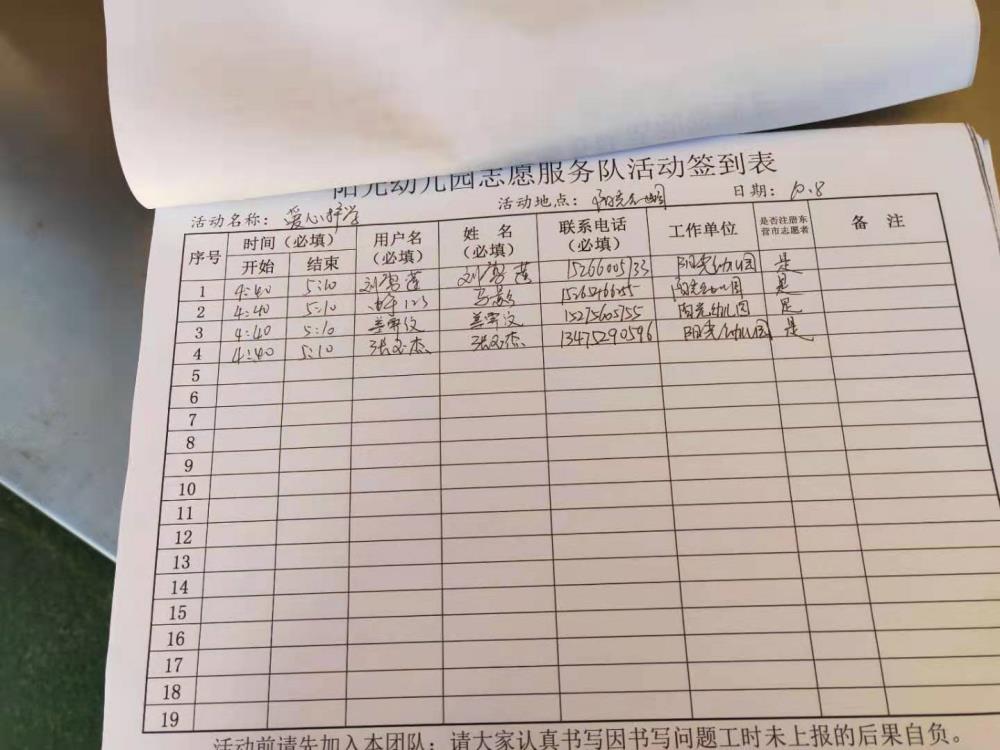 阳光幼儿园志愿服务队活动签到表
活动名称：爱心护学 活动地点：阳光幼儿园 日期：10.8
序号 时间（必填） 用户名（必填） 姓 名（必填） 联系电话（必填） 工作单位 是否注册东营市志愿者 备 注
开始 结束
1 4:40 5:10 15266005133 阳光幼儿园 是
2 4:40 5:10 阳光幼儿园 是
3 4:40 5:10 15275605755 阳光幼儿园 是
4 4:40 5:10 张文杰 张文杰 13475290596 阳光幼儿园 是
5
6
7
8
9
10
11
12
13
14
15
16
17
18
19
活动前请先加入本团队；请大家认真书写因书写问题工时未上报的后果自负。